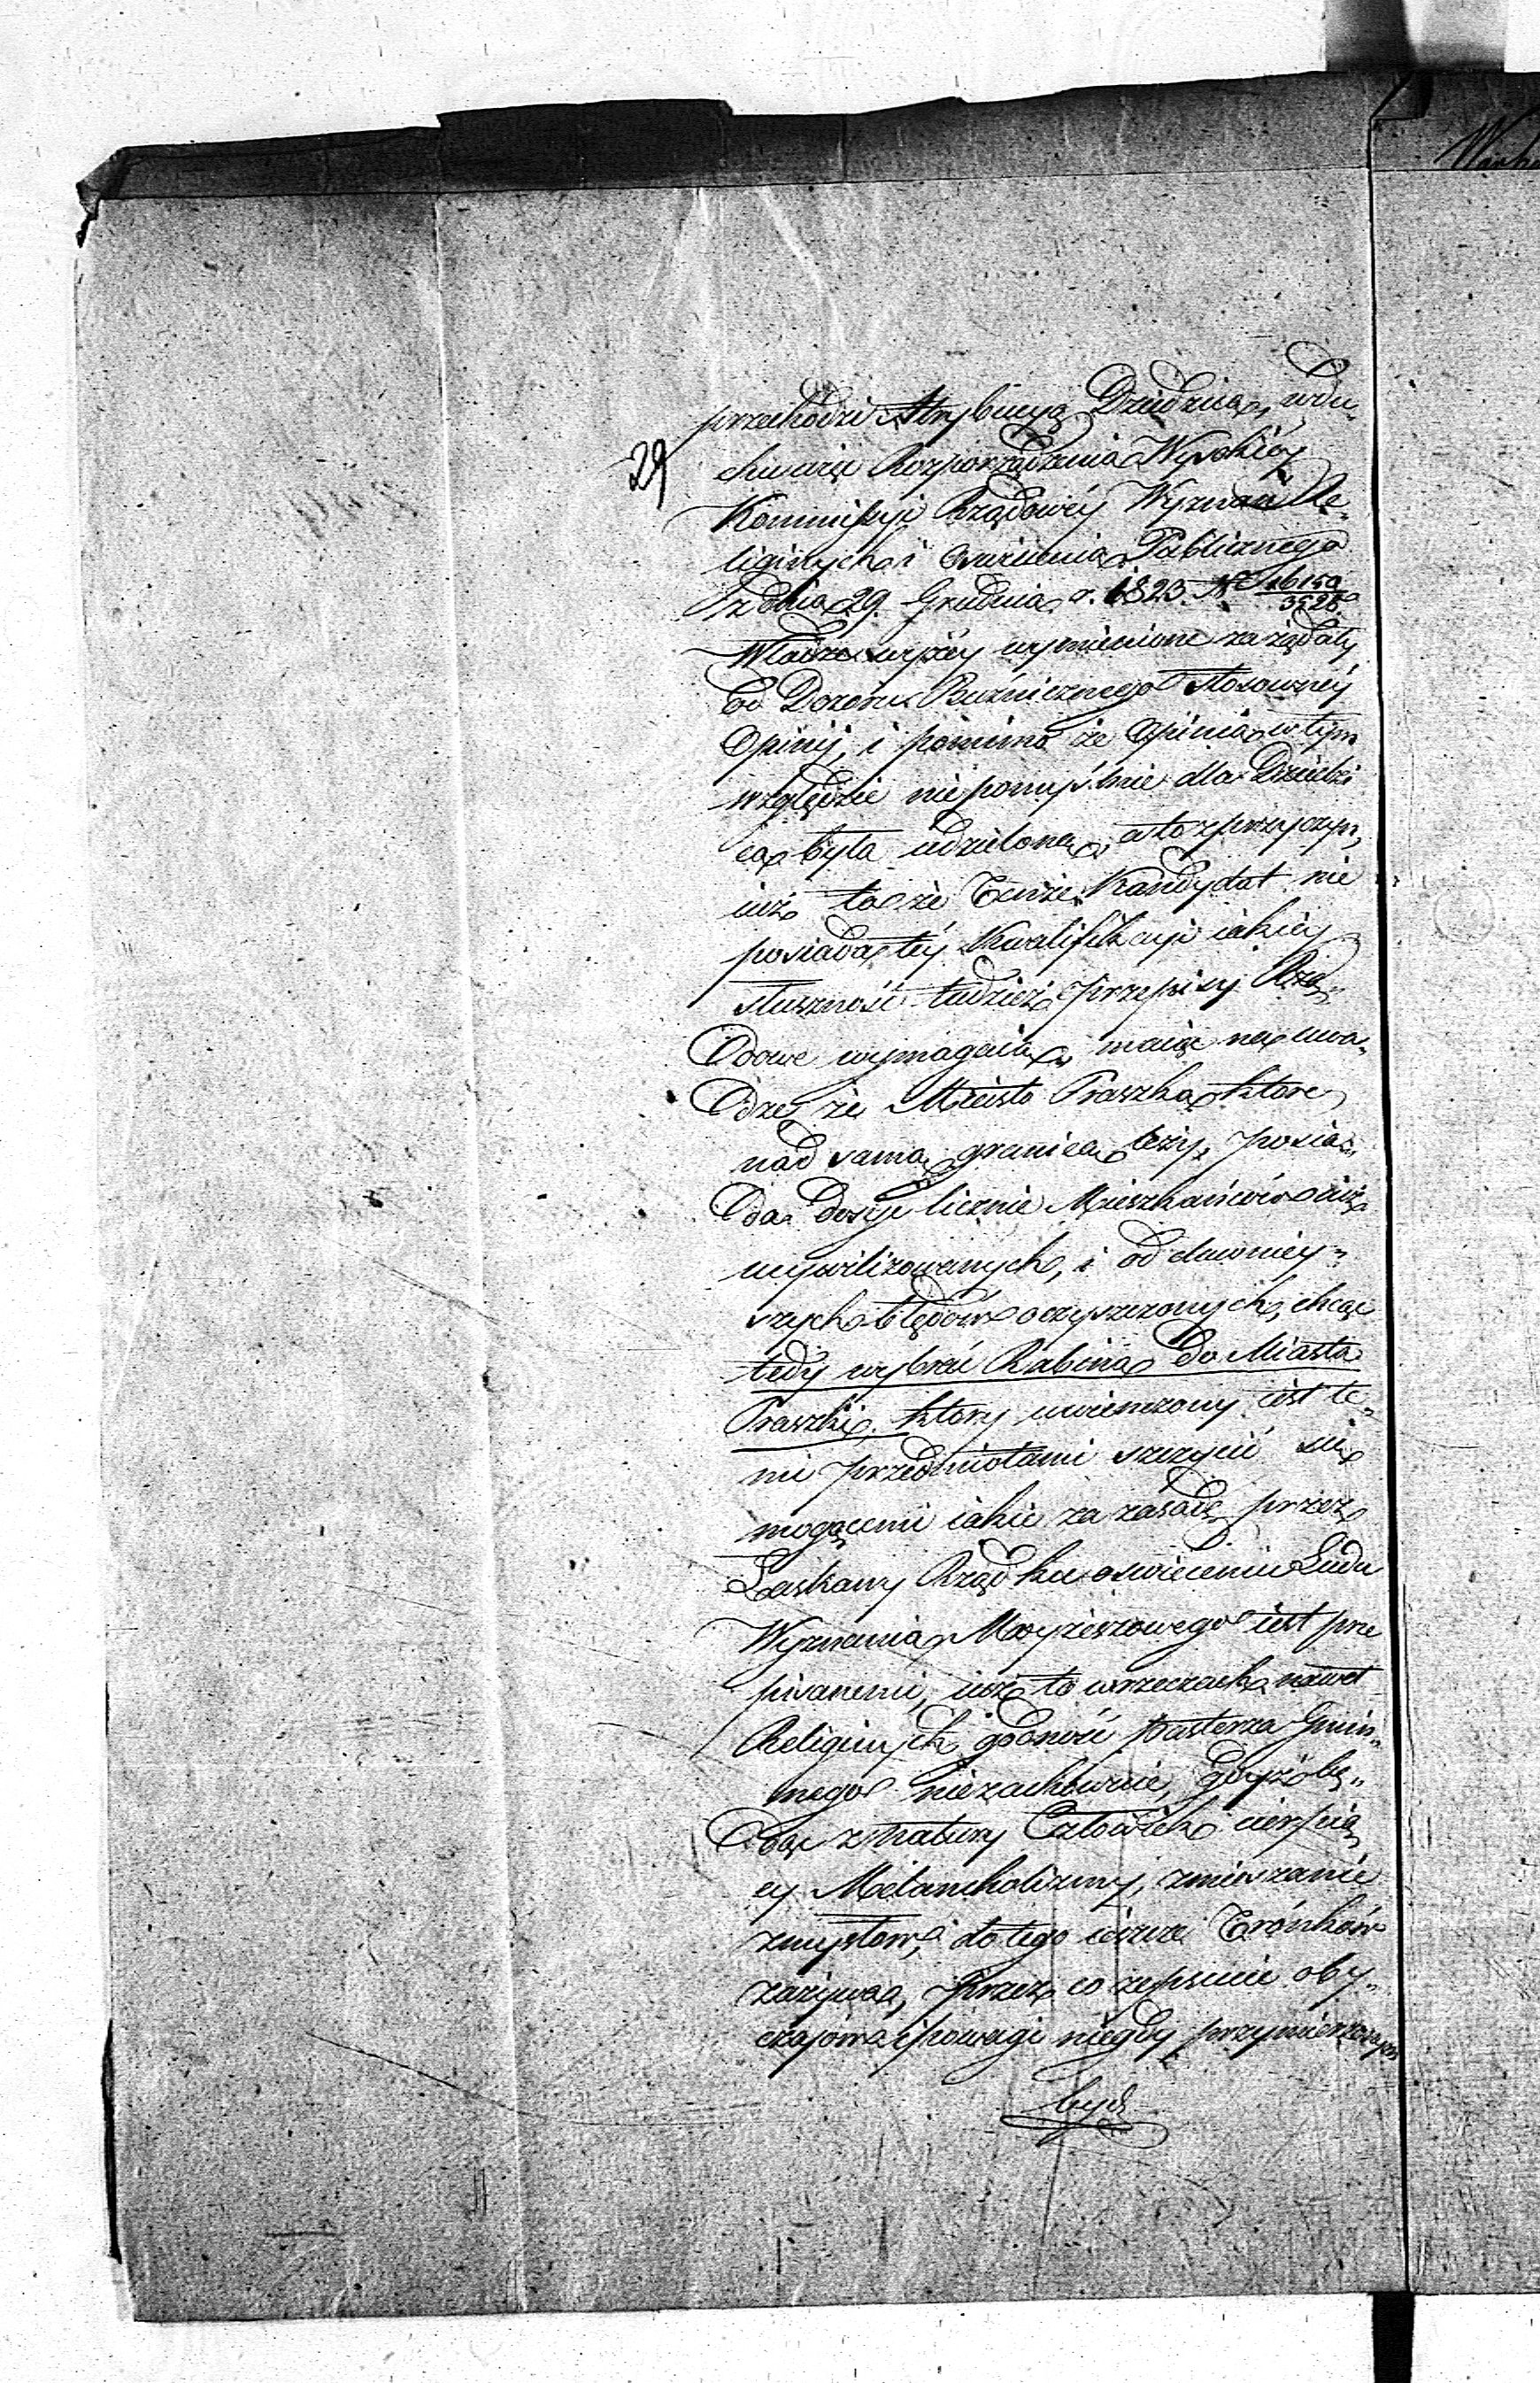 przechodzi Atrybucyą Dziedzica, wdu„
29
chu zaś Rozporządzenia Wysokiéy
Kommissyi Rządowéy Wyznań Re„
ligijnych i Oświecenia Publicznego
z dnia 29. Grudnia r. 1823. No 16150/3528
Władze wyżéy wymienione zażądały
od Dozoru Bużniczego stosownéy
Opinij, i pomimo że Opinia w tym
względzie niepomyślnie dla Dziedzi
ca była udzielona, a to z przyczyn,
iuż to że Tenże Kandydat nie
posiada téy Kwalifikacyi iakiéy
słuszność tudzież przepisy Rzą„
dowe wymagaią, maiąc na uwa„
dze, że Miasto Praszka, które
nad samą granicą leży, posia„
da dosyć licznie Mieszkańców iuż
ucywilizowanych, i od dawniey„
szych błędów oczyszczonych, chcąc
tedy wybrać Rabina do Miasta
Praszki, który uwieńczony iest te„
mi przedmiotami szczycić się
mogącemi iakie za zasadę przez
Łaskawy Rząd ku oświeceniu Ludu
Wyznania Moyżeszowego iest prze
pisanemi, iuż to w rzeczach nawet
Religinych godność Pasterza Gmin„
nego niezachowuie, gdyż bę„
dąc z natury Człowiek cierpią
cy Melancholizmy, zmieszanie
zmysłów, do tego ieszcze Trónków
zażywa, przez co zepsucie oby„
czajów i powagi niegdy przymierzonym
być